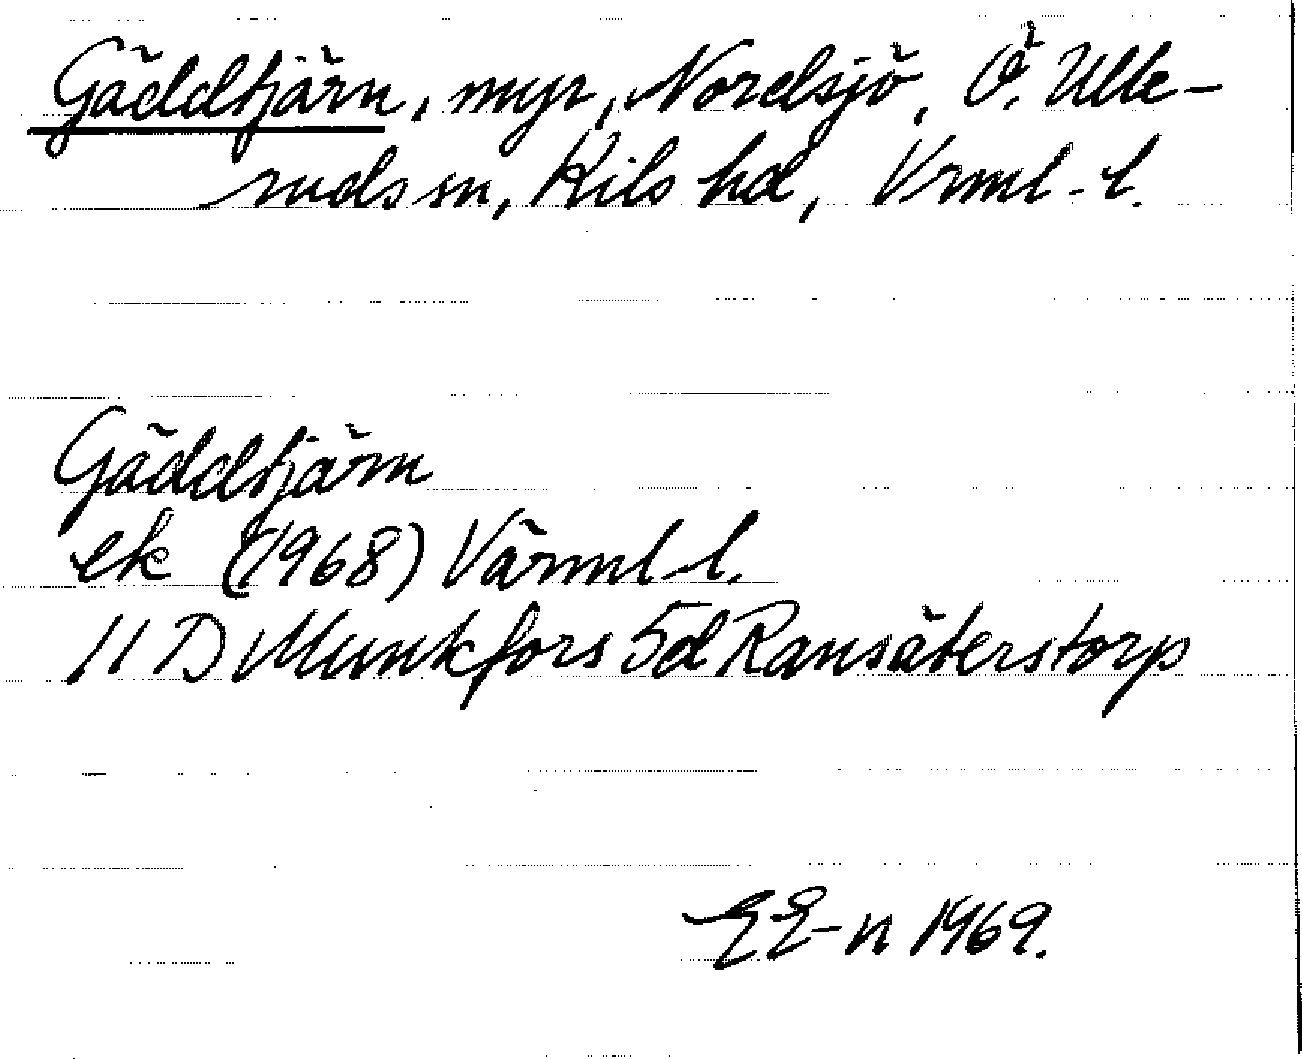 Gäddtjärn, myr, Nordsjö, Ö. Ulle-
ruds sn, Kils hd, Vrml. l.
Gäddtjärn
ek (1968) Värml. l.
11 D Munkfors 5d Ransäterstorp
EE-n 1969.